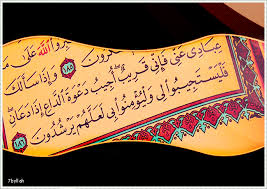 بِرُوا اللَّهَ عَلَىٰ
تَشْكُرُونَ ١٨٥ وَإِذَا سَأَلَكَ
عِبَادِي عَنِّي فَإِنِّي قَرِيبٌ أُجِيبُ دَعْوَةَ الدَّاعِ إِذَا دَعَانِ
فَلْيَسْتَجِيبُوا لِي وَلْيُؤْمِنُوا بِي لَعَلَّهُمْ يَرْشُدُونَ ١٨٦